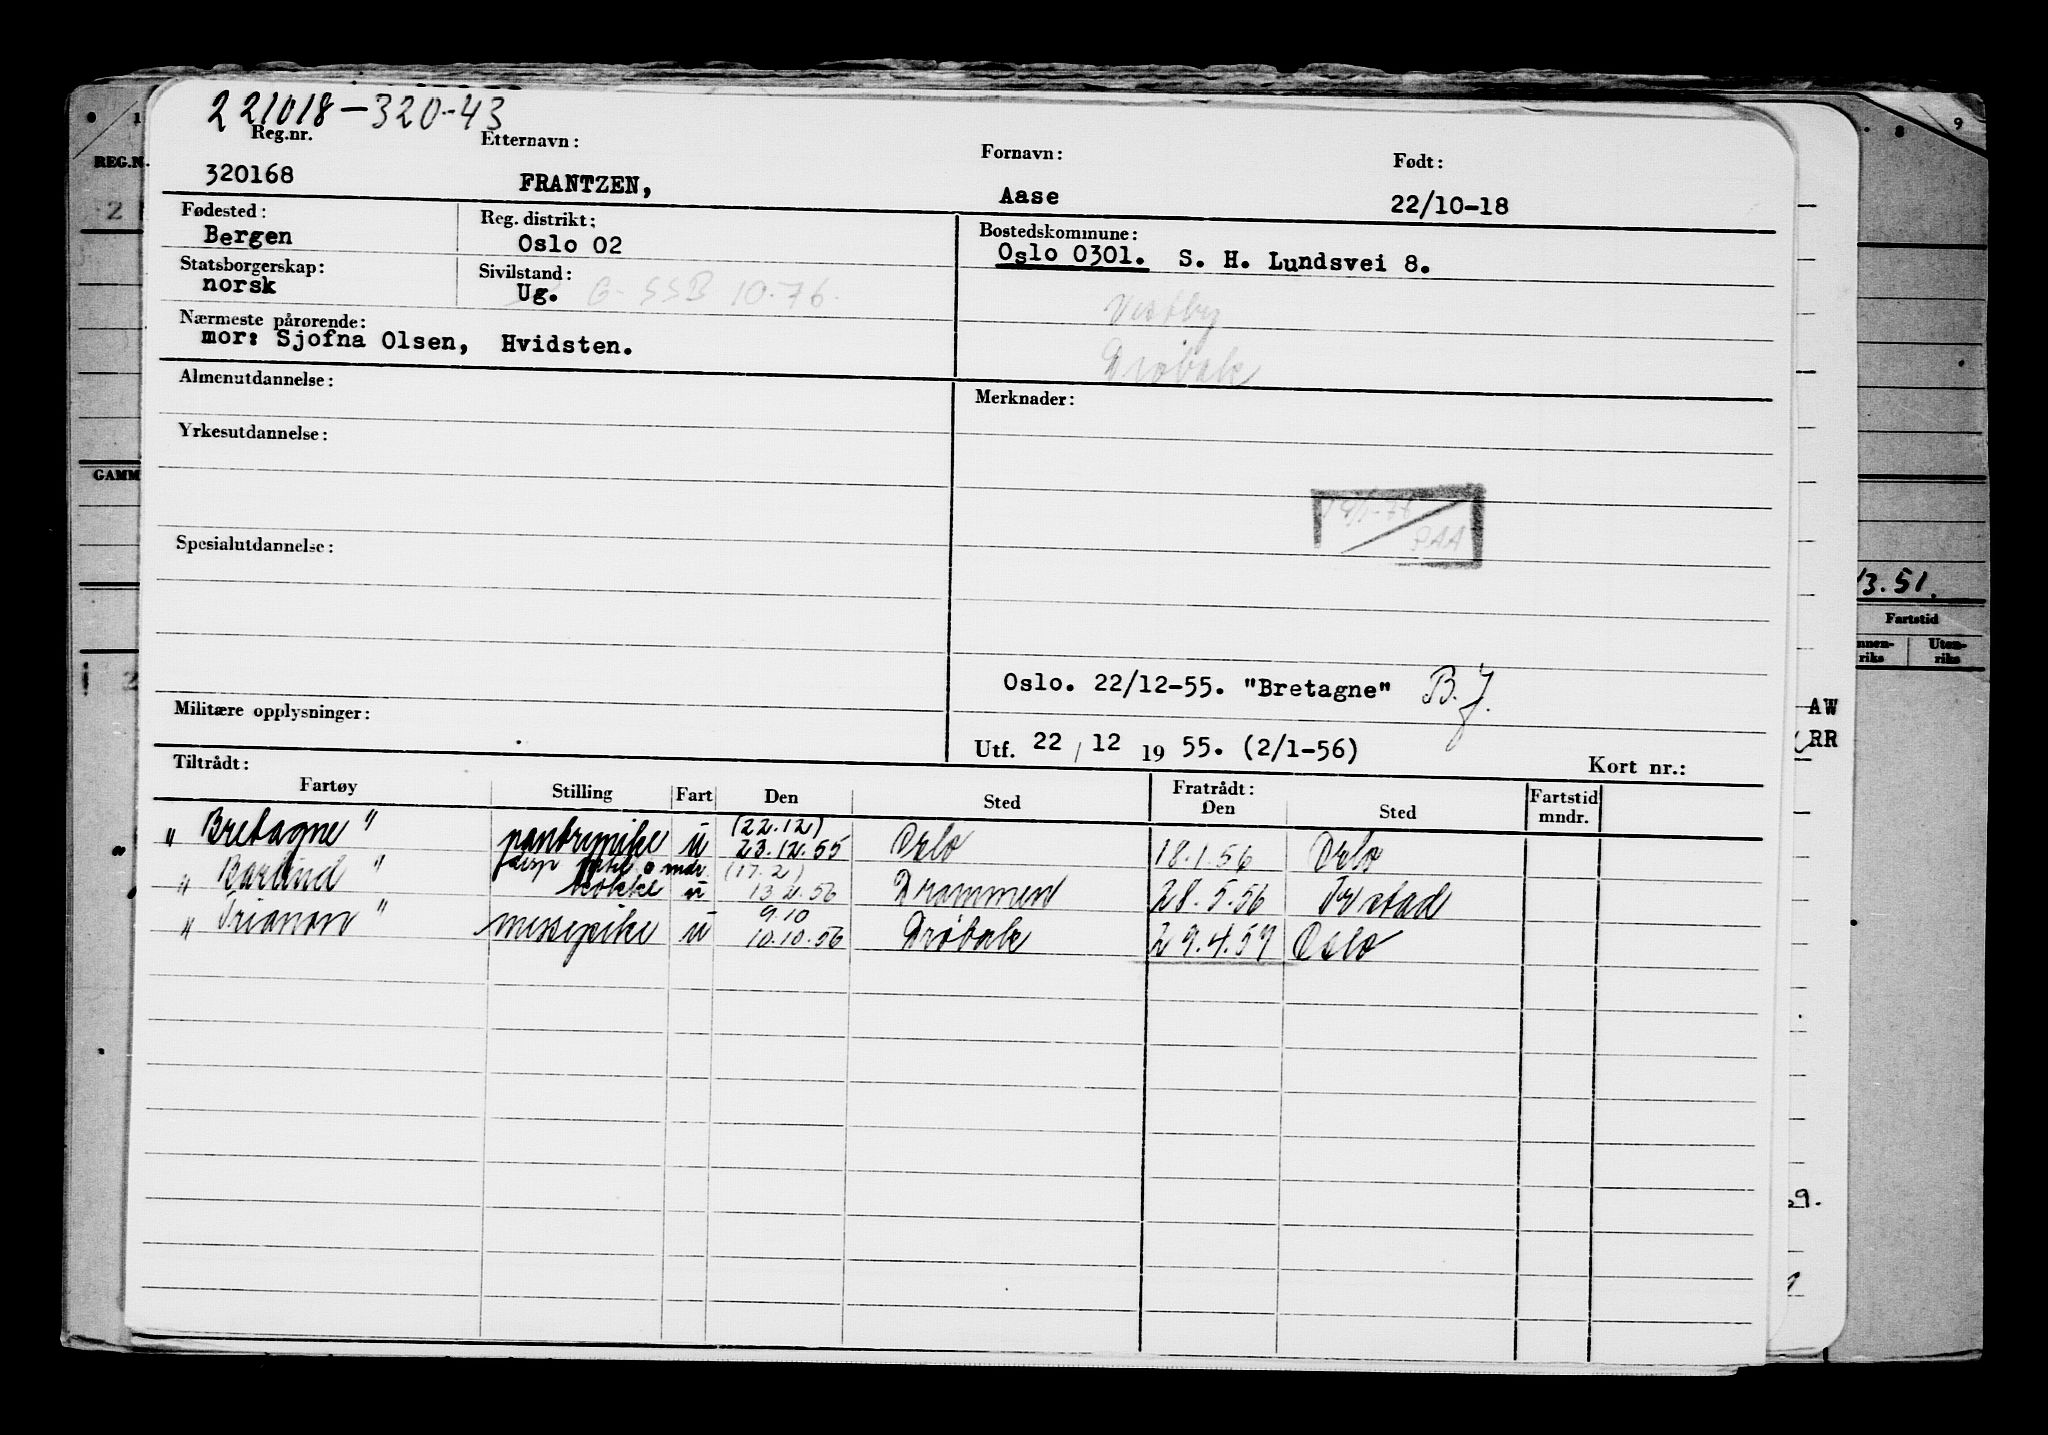 221018-320-43
Reg.nr. Etternavn: Fornavn: Født:
320168 FRANTZEN, Aase 22/10-18
Fødested: Reg. distrikt: Bostedskommune:
Bergen Oslo 02 Oslo 0301. S. H. Lundsvei 8.
Statsborgerskap: Sivilstand:
norsk Ug. G- SSB 10.76.
Vestby
Nærmeste pårørende:
mor: Sjofna Olsen, Hvidsten.
Drøbak
Almenutdannelse: Merknader:
Yrkesutdannelse:
Spesialutdannelse:
Oslo. 22/12-55. "Bretagne" B.J.
Militære opplysninger:
Utf. 22 / 12 19 55. (2/1-56)
Tiltrådt: Kort nr.:
Fartøy Stilling Fart Den Sted Fratrådt: Den Sted Fartstid mndr.
(22.12)
"Bretagne" pantrypike u 23.12.55 Oslo 18.1.56 Oslo
(17.2)
"Barlind" kokke u 13.2.56 Drammen 28.5.56 Fr stad
9.10
"Trianon" messepike u 10.10.56 Drøbak 29.4.57 Oslo
REG.N.
GAMM
8 9
13.51.
Fartstid
nnen-riks Uten-riks
AW
RR